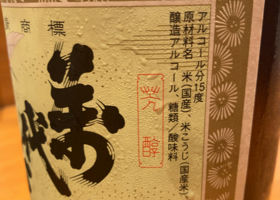 商標
萬
代
芳醇
アルコール分15度
原材料名 米(国産)、米こうじ(国産米)、
醸造アルコール、糖類／酸味料